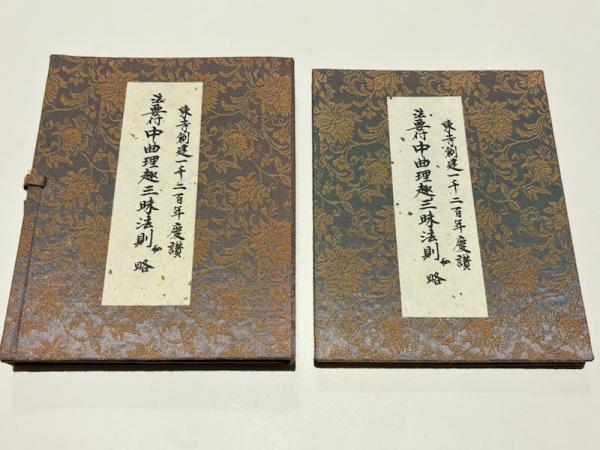 東寺創建一千二百年慶讃
法要付中曲理趣三昧法則 略
東寺創建一千二百年慶讃
法要付中曲理趣三昧法則 略